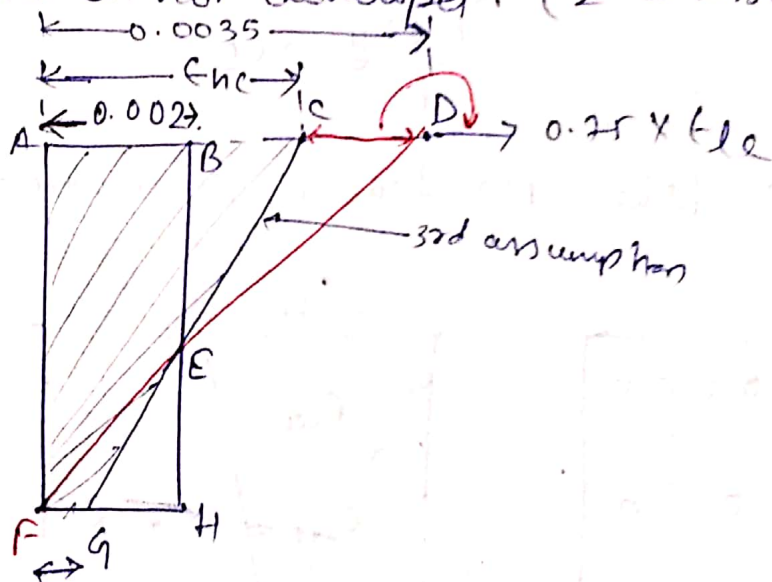 0.0035
Ehc
0.002
A B C D 0.75 X Ele
3rd assumption
E
F G H